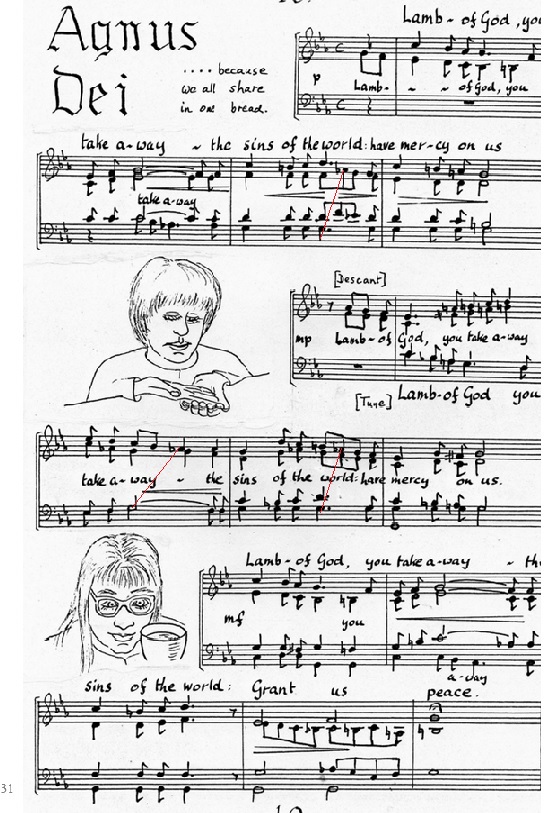 Agnus
Dei
.... because
we all share
in one bread.
Lamb - of God, you
p
Lamb - ~ ~ of God, you
take a-way ~ the sins of the world: have mer-cy on us
take a-way
[Descant]
mp Lamb-of God, you take a-way
[Tune] Lamb-of God you
take a-way ~ the sins of the world: have mercy on us.
Lamb-of God, you take a-way ~ the
mf you
a-way
sins of the world: Grant us peace.
31